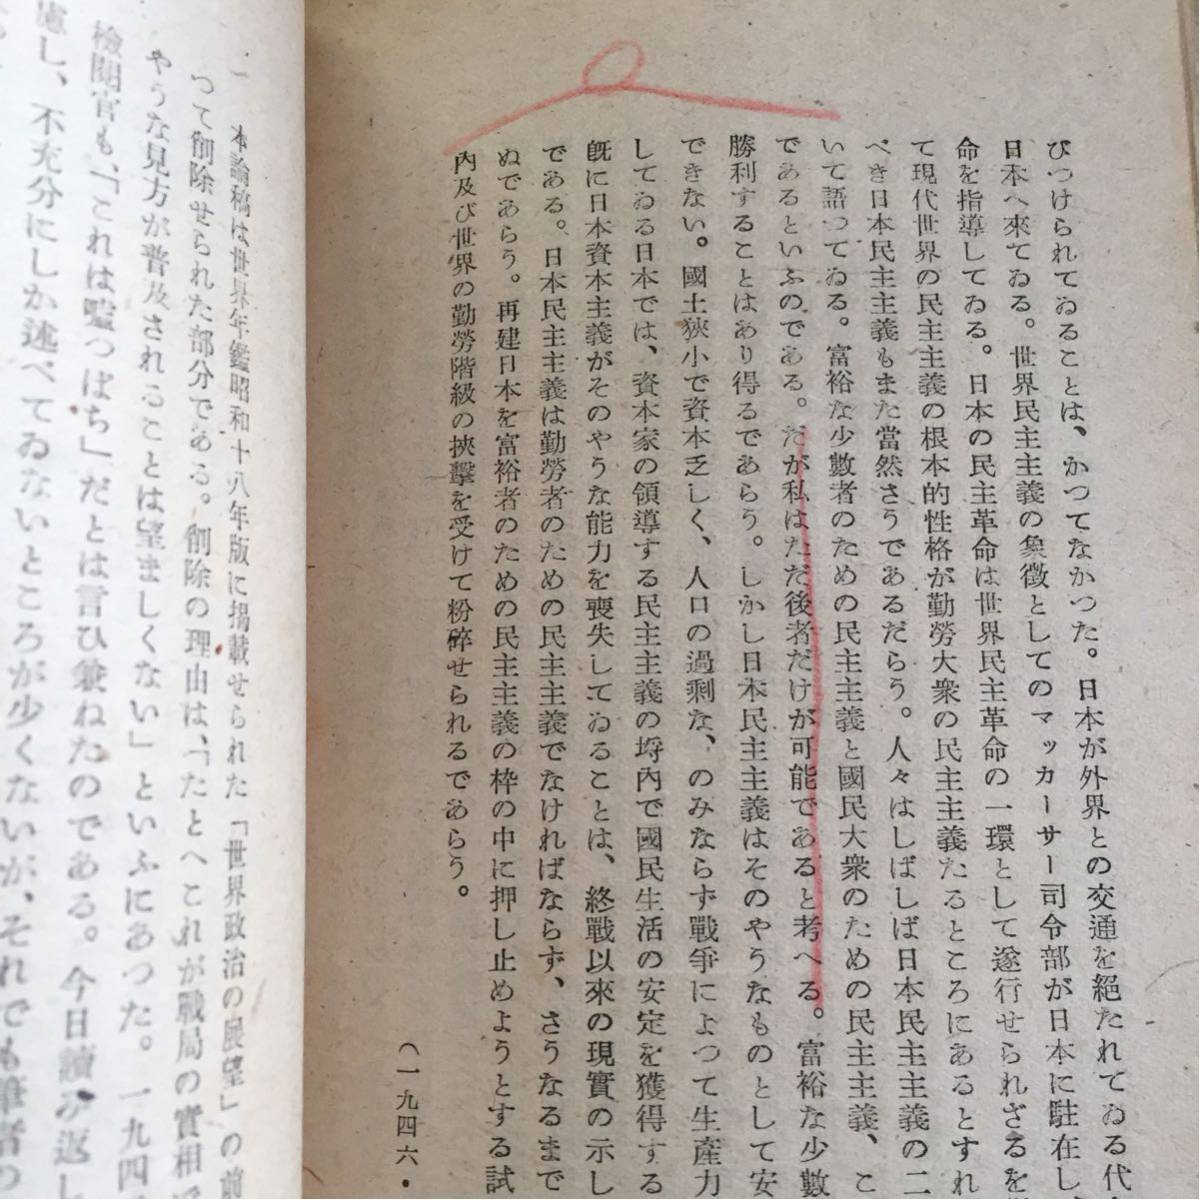 びつけられてゐることは、かつてなかつた。日本が外界との交通を絶たれてゐる代
日本へ來てゐる。世界民主主義の象徴としてのマッカーサー司令部が日本に駐在し
命を指導してゐる。日本の民主革命は世界民主革命の一環として遂行せられざるを
て現代世界の民主主義の根本的性格が勤勞大衆の民主主義たるところにあるとすれ
べき日本民主主義もまた當然さうであるだらう。人々はしばしば日本民主主義の二
いて語つてゐる。富裕な少數者のための民主主義と國民大衆のための民主主義、こ
であるといふのである。だが私はただ後者だけが可能であると考へる。富裕な少數
勝利することはあり得るであらう。しかし日本民主主義はそのやうなものとして安
できない。國土狹小で資本乏しく、人口の過剩な、のみならず戰爭によつて生產力
してゐる日本では、資本家の領導する民主主義の埒內で國民生活の安定を獲得する
旣に日本資本主義がそのやうな能力を喪失してゐることは、終戰以來の現實の示し
である。日本民主主義は勤勞者のための民主主義でなければならず、さうなるまで
ぬであらう。再建日本を富裕者のための民主主義の枠の中に押し止めようとする試
內及び世界の勤勞階級の挾擊を受けて粉碎せられるであらう。
(一九四六・
一 本論稿は世界年鑑昭和十八年版に揭載せられた「世界政治の展望」の前
つて削除せられた部分である。削除の理由は、「たとへこれが戰局の實相
やうな見方が普及されることは望ましくない」といふにあつた。一九四
檢閱官も、「これは噓つぱち」だとは言ひ兼ねたのである。今日讀み返し
慮し、不充分にしか述べてゐないところが少くないが、それでも筆者の